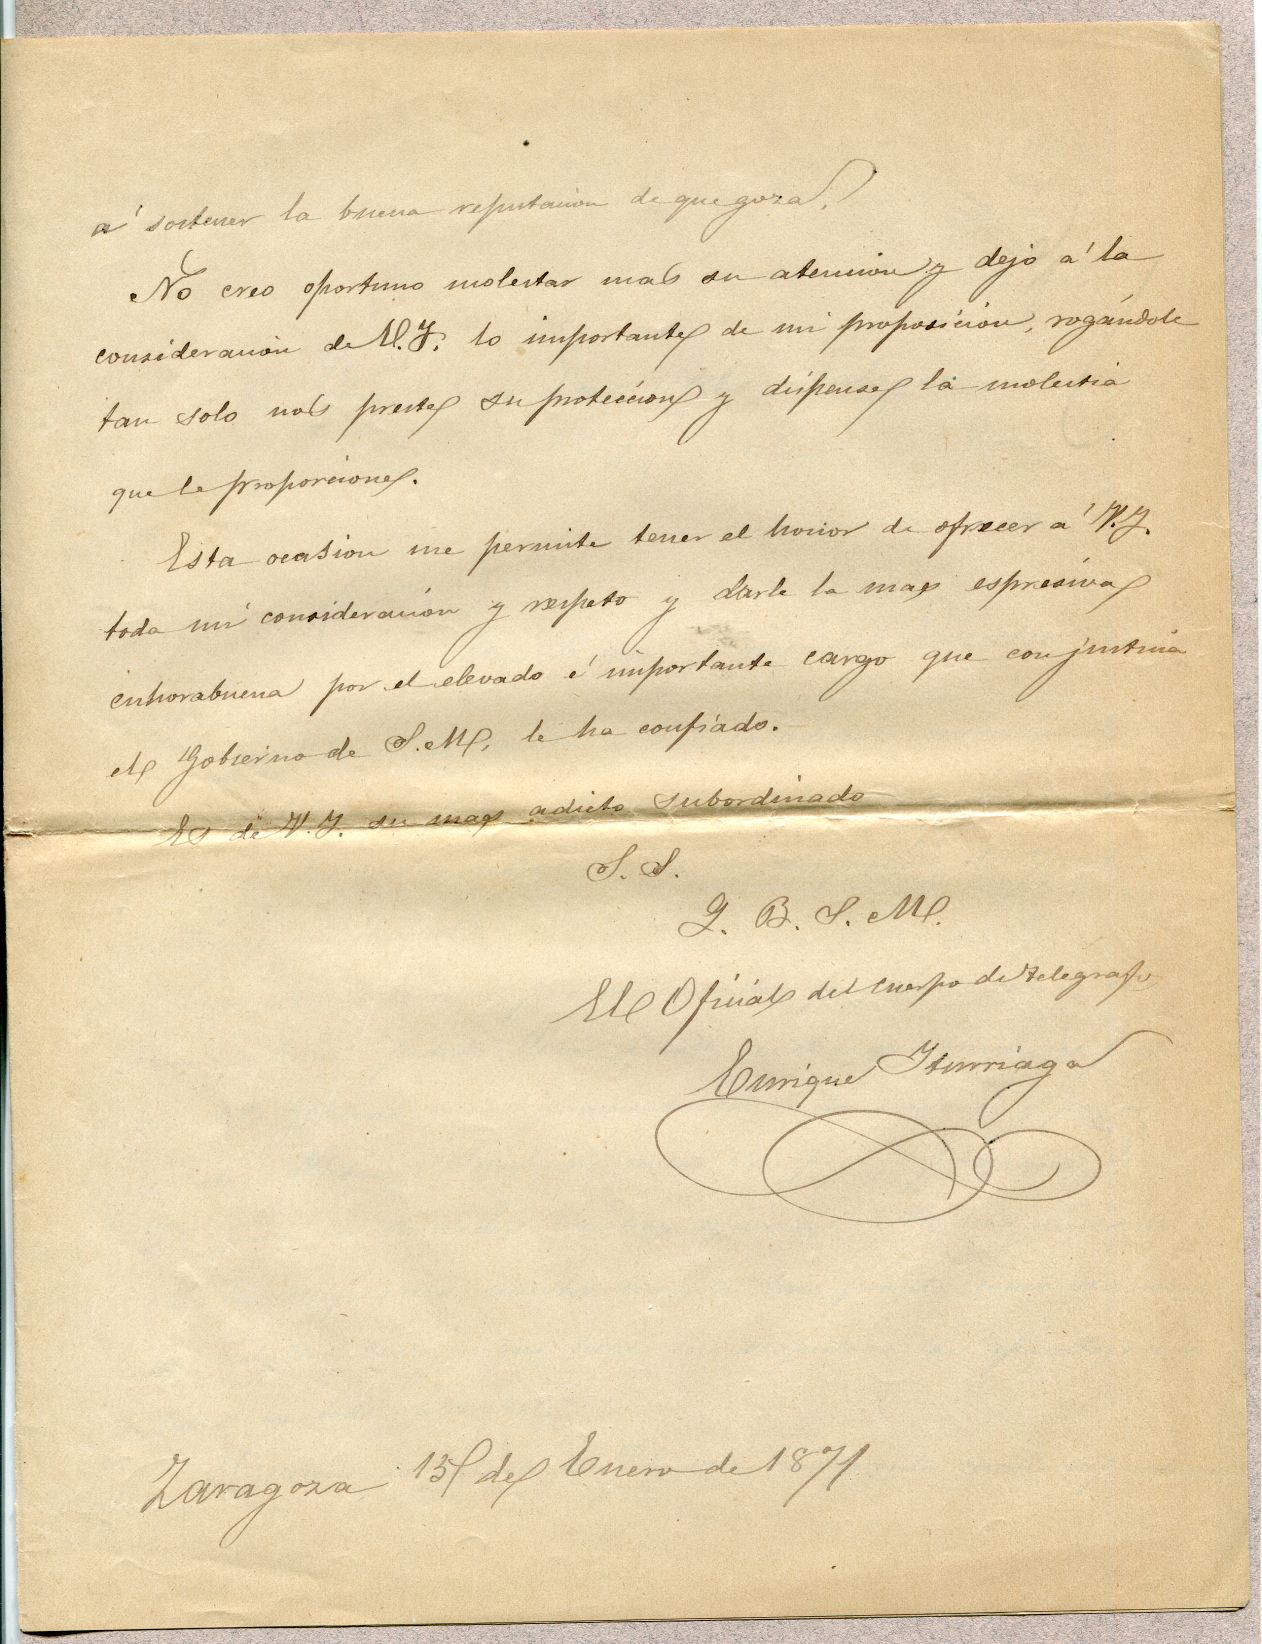 á sostener la buena reputacion de que goza.
No creo oportuno molestar mas su atencion y dejo á la
consideracion de V.I. lo importante de mi proposicion, rogándole
tan solo nos preste su proteccion y dispense la molestia
que le proporcione.
Esta ocasion me permite tener el honor de ofrecer á V.I.
toda mi consideracion y respeto y darle la mas espresiva
enhorabuena por el elevado é importante cargo que con justicia
el Gobierno de S.M. le ha confiado.
Es de V.I. su mas adicto subordinado
S. S.
Q. B. S. M.
El Oficial del Cuerpo de Telégrafos
Enrique Iturriaga
Zaragoza 15 de Enero de 1871